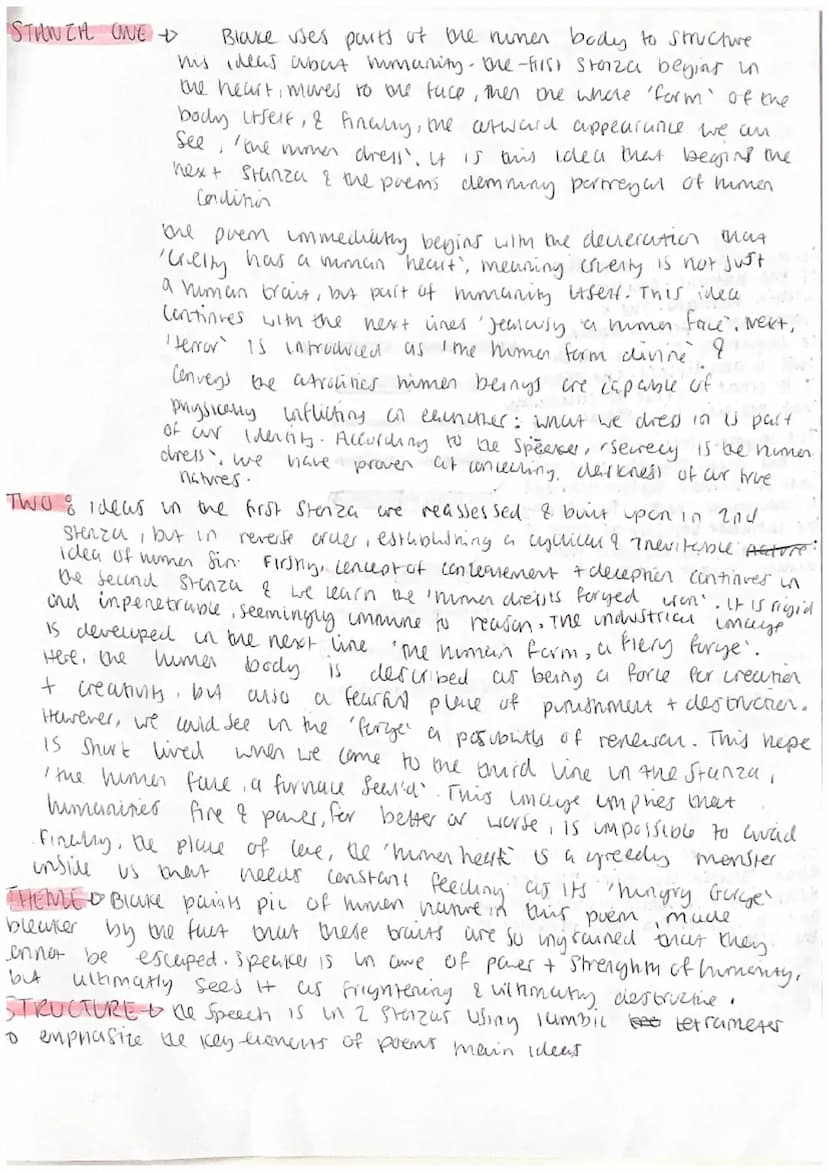 STANZA ONE → Blake uses parts of the human body to structure
his ideas about humanity - the first stanza begins in
the heart, moves to the face, then the whole 'form' of the
body itself, & finally, the outward appearance we can
see, 'the human dress'. It is this idea that begins the
next stanza & the poems damning portrayal of human
condition
The poem immediatly begins with the decleration that
'Cruelty has a human heart', meaning cruelty is not just
a human trait, but part of humanity itself. This idea
continues with the next lines 'jealousy, a human face'. Next,
'terror' is introduced as 'the human form divine' &
conveys the atrocities human beings are capable of
physically inflicting on eachother: what we dress in is part
of our identity. According to the speaker, 'secrecy is the human
dress'. we have proven at concealing. darkness of our true
natures.
TWO & ideas in the first stanza are reassessed & built upon in 2nd
stanza, but in reverse order, establishing a cyclical & inevitable nature
idea of human sin. Firstly, concept of concealment + deception continues in
the second stanza & we learn the 'human dress is forged iron'. It is rigid
and impenetrable, seemingly immune to reason. The industrial image
is developed in the next line 'the human form, a fiery forge'.
Here, the human body is described as being a force for creation
+ creativity, but also a fearful place of punishment + destruction.
However, we could see in the 'forge' a possibility of renewal. This hope
is short lived when we come to the third line in the stanza,
'the human face, a furnace seal'd'. This image implies that
humanities fire & power, for better or worse, is impossible to avoid
. Finally, the place of love, the 'human heart' is a greedy monster
inside us that needs constant feeding as its 'hungry Gorge'
THEME → Blake paints pic of human nature in this poem, made
bleaker by the fact that these traits are so ingrained that they
cannot be escaped. Speaker is in awe of power + strenghth of humanity,
but ultimatly sees it as frightening & ultimatly destructive.
STRUCTURE → the speech is in 2 stanzas using iambic tetrameter
to emphasize the key elements of poems main ideas